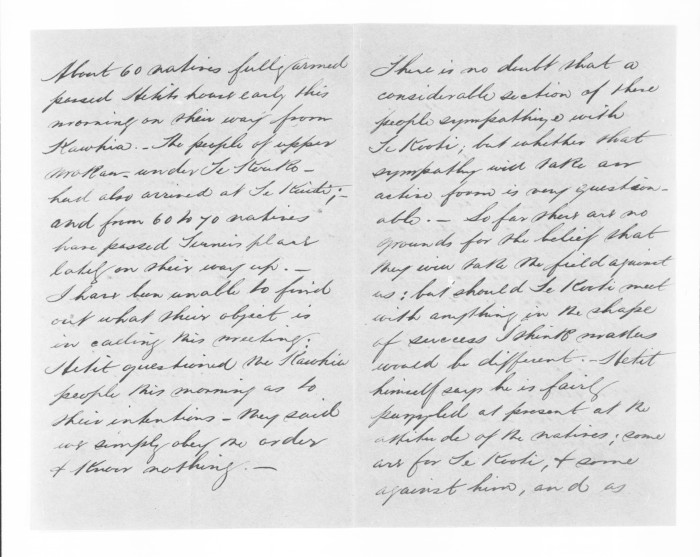 About 60 natives fully armed
passed Hetits house early this
morning on their way from
Kawhia. — The people of upper
Mokau — under Te Kouke —
had also arrived at Te Kuiti; —
and from 60 to 70 natives
have passed Turners place
lately on their way up. —
I have been unable to find
out what their object is
in calling this meeting.
Hetit questioned the Kawhia
people this morning as to
their intentions — they said
we simply obey the order
& know nothing. —
There is no doubt that a
considerable section of these
people sympathize with
Te Kooti; but whether that
sympathy will take an
active form is very question-
able. — So far there are no
grounds for the belief that
they will take the field against
us; but should Te Kooti meet
with anything in the shape
of success I think matters
would be different. — Hetit
himself says he is fairly
puzzled at present at the
attitude of the natives; some
are for Te Kooti, & some
against him, and as